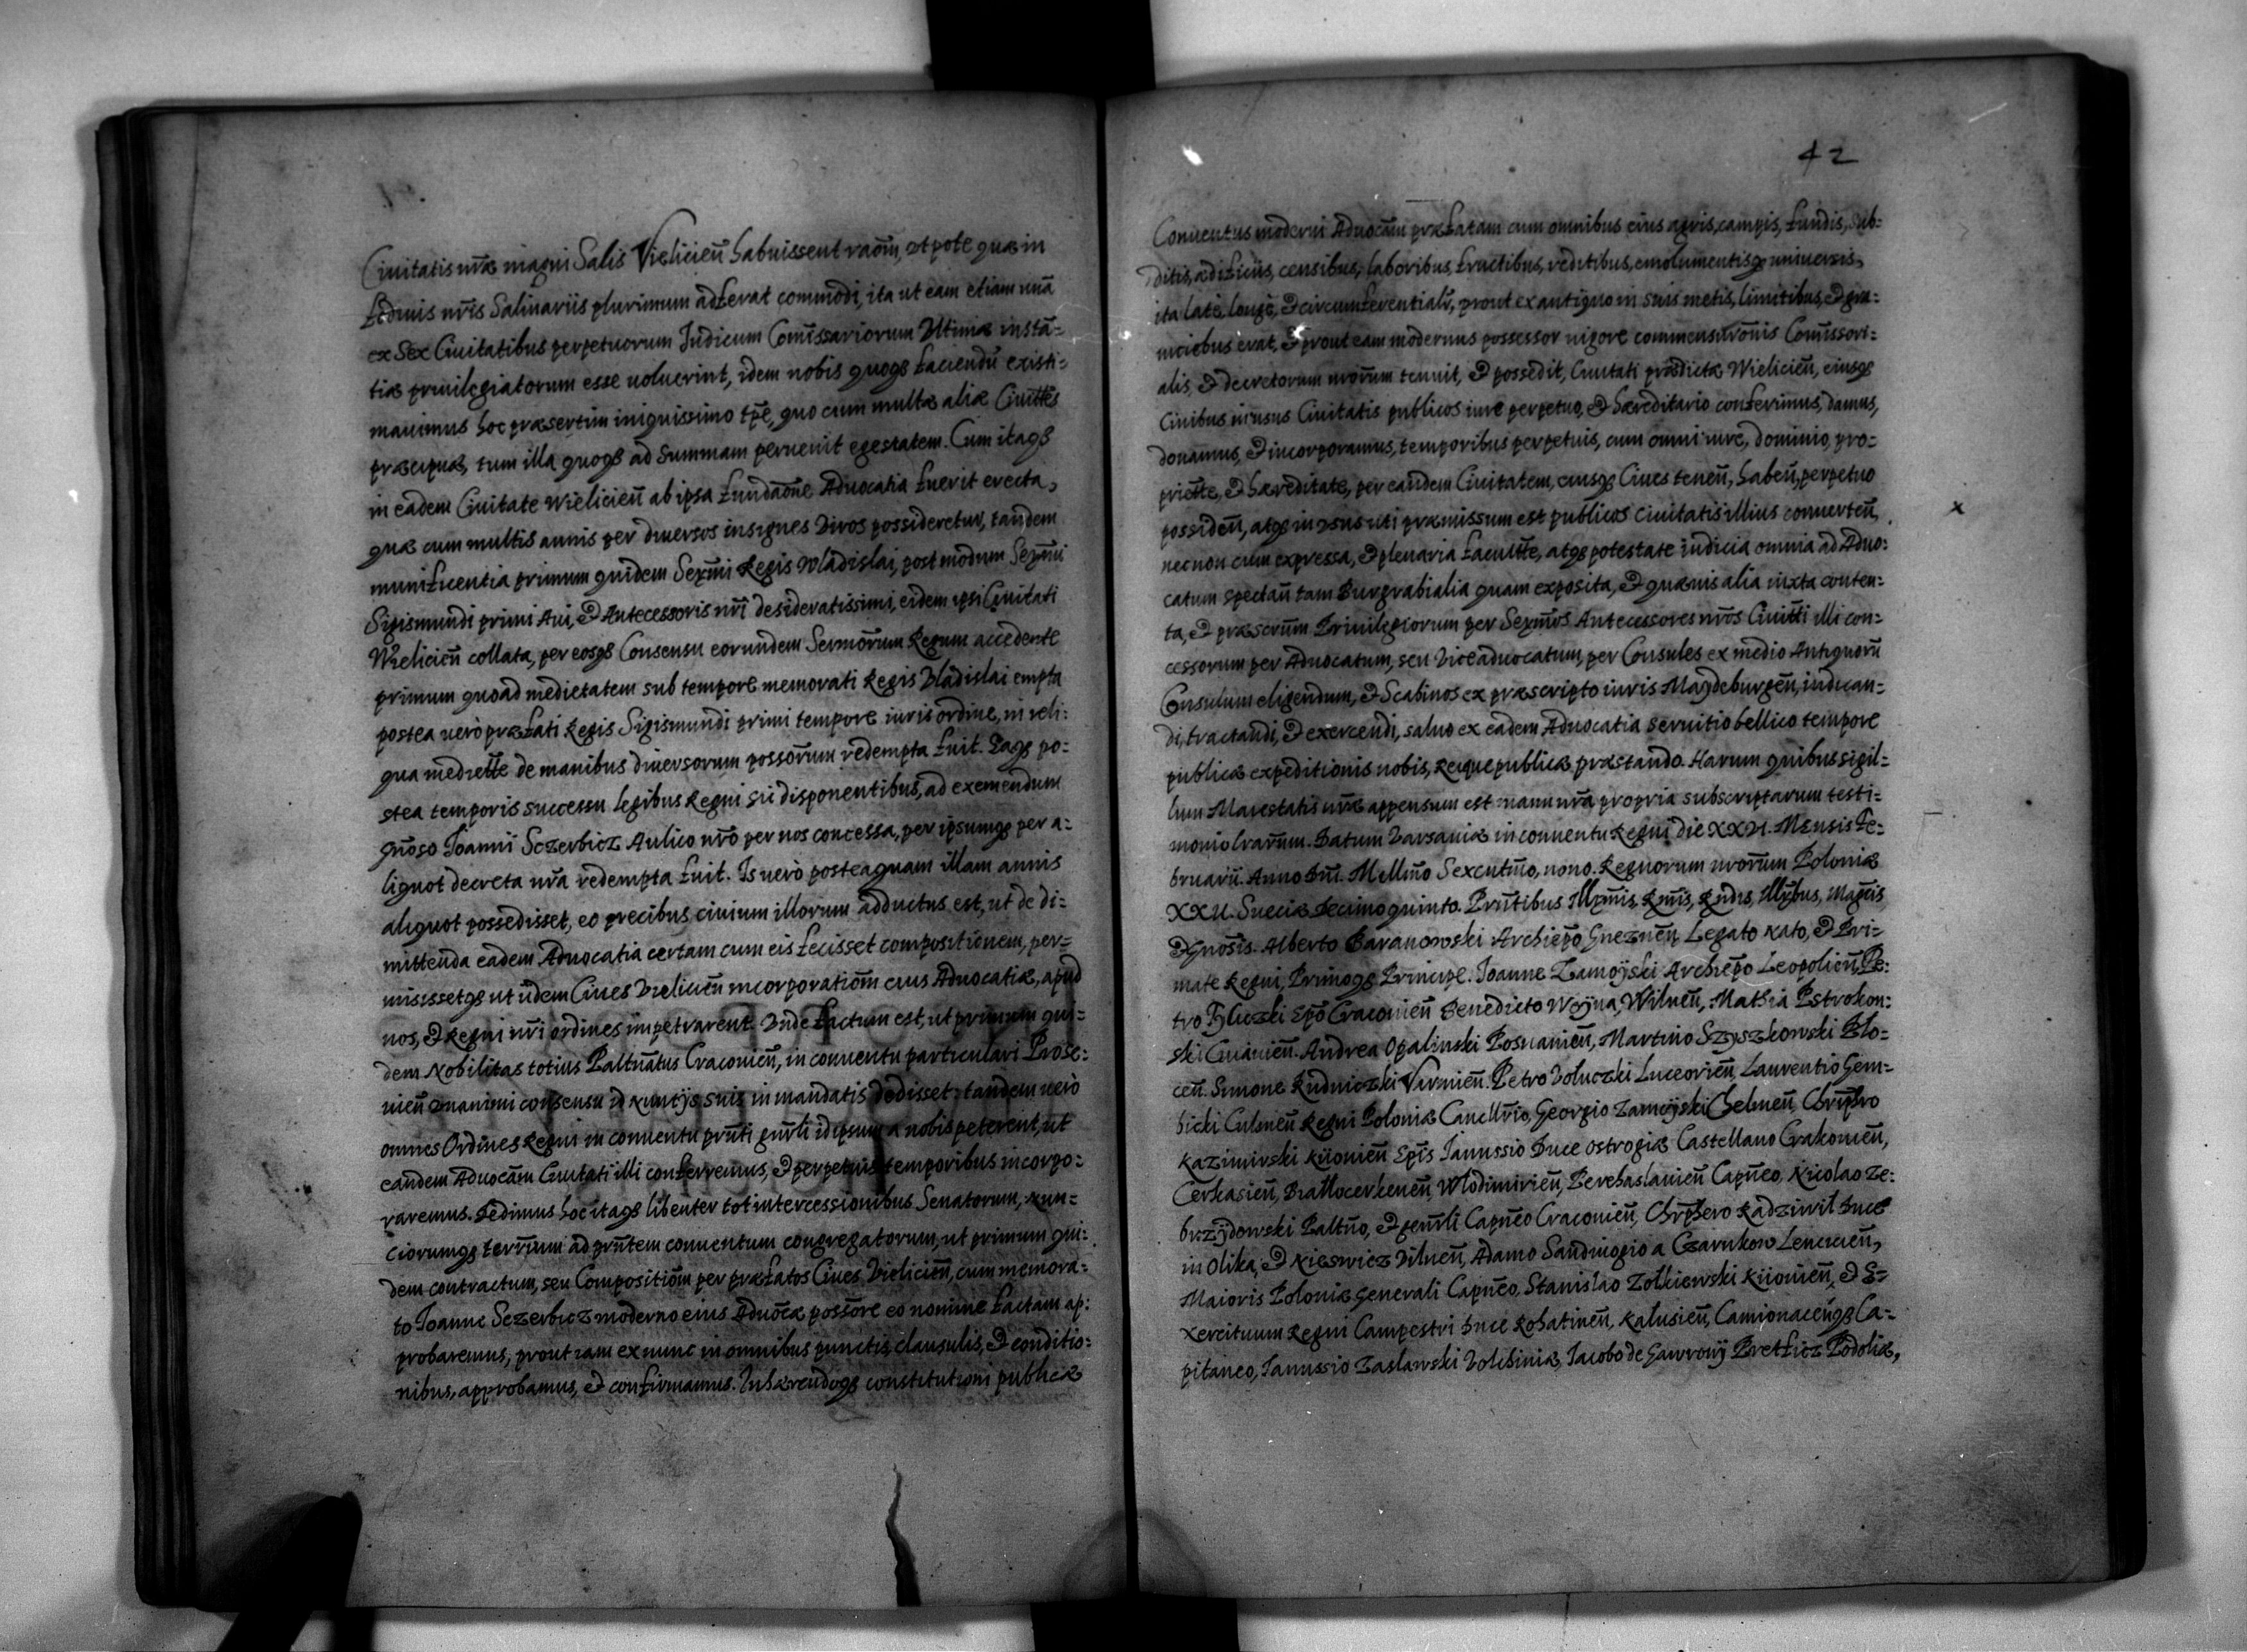 Ciuitatis nr̄æ magni Salis Vielicień habuissent rao͞m, ut pote quæ in
fodinis nr̄is Salinariis plurimum adferat commodi, ita ut eam etiam unā
ex Sex Ciuitatibus perpetuorum Judicum Com̄issariorum Ultimæ instā=
tiæ priuilegiatorum esse uoluerint, idem nobis quoqȝ faciendū existi=
mauimus hoc præsertim iniquissimo tp̄e, quo cum multæ aliæ Ciuitt̄es
præcipuæ, tum illa quoqȝ ad Summam peruenit egestatem. Cum itaqȝ
in eadem Ciuitate Wielicień ab ipsa fundao͞ne Aduocatia fuerit erecta,
quæ cum multis annis per diuersos insignes Viros possideretur, tandem
munificentia primum quidem Serm̄i Regis Vladislai, post modum Serm̄i
Sigismundi primi Aui, & Antecessoris nr̄i desideratissimi, eidem ipsi Ciuitati
Wielicień collata, per eosqȝ Consensu eorundem Sermo͞rum Regum accedente
primum quoad medietatem sub tempore memorati Regis Vladislai empta
postea uerò præfati Regis Sigismundi primi tempore iuris ordine, in reli:
qua mediett̄e de manibus diuersorum posso͞rum redempta fuit. Eaqȝ po=
stea temporis successu legibus Regni sic disponentibus, ad exemendum
gn̄oso Joanni Sczerbicz Aulico nr̄o per nos concessa, per ipsumqȝ per a=
liquot decreta nr̄a redempta fuit. Is uerò posteaquam illam annis
aliquot possedisset, eo precibus ciuium illorum adductus est, ut de di=
mittenda eadem Aduocatia certam cum eis fecisset compositionem, per=
misissetqȝ ut iidem Ciues Vielicień incorporatio͞m eius Aduocatiæ, apud
nos, & Regni nr̄i ordines impetrarent. Unde factum est, ut primum qui=
dem Nobilitas totius Paltn̄atus Cracouień, in conuentu particulari Prose=
uień unanimi consensu id Nuntijs suis in mandatis dedisset, tandem uerò
omnes Ordines Regni in conuentu prn̄ti gnr̄li idipsum a nobis peterent, ut
eandem Aduocāam Ciuitati illi conferremus, & perpetuis temporibus incorpo=
raremus. Dedimus hoc itaqȝ libenter tot intercessionibus Senatorum, Nun=
ciorumqȝ terrr̄um ad prn̄tem conuentum congregatorum, ut primum qui=
dem contractum, seu Compositio͞m per præfatos Ciues Vielicień, cum memora=
to Joanne Sczerbicz moderno eius Aduo͞cæ posso͞re eo nomine factam ap:
probaremus, prout iam ex nunc in omnibus punctis, clausulis, & conditio=
nibus, approbamus, & confirmamus. Inhærendoqȝ constitutioni publicæ
42
Conuentus moderni Aduocāam præfatam cum omnibus eius agris, campis, fundis, sub=
ditis, ædificiis, censibus, laboribus, fructibus, reditibus, emolumentisqȝ uniuersis,
ita latè, longè, & circumferentialr̄, prout ex antiquo in suis metis, limitibus, & gra=
niciebus erat, & prout eam modernus possessor uigore commensurao͞nis Com̄issori=
alis, & decretorum nro͞rum tenuit, & possedit, Ciuitati prædictæ Wielicień, eiusqȝ
Ciuibus in usus Ciuitatis publicos iure perpetuo, & hæreditario conferimus, damus,
donamus, & incorporamus, temporibus perpetuis, cum omni iure, dominio, pro=
priett̄e, & hæreditate, per eandem Ciuitatem, eiusqȝ Ciues tenen̄, haben̄, perpetuo
possiden̄, atqȝ in usus uti præmissum est publicos Ciuitatis illius conuerten̄,
x
necnon cum expressa, & plenaria facultt̄e, atqȝ potestate iudicia omnia ad Aduo:
catum spectan̄ tam Burgrabialia quam exposita, & quæuis alia iuxta conten=
ta, & præscrr̄um Priuilegiorum per Serm̄os Antecessores nr̄os Ciuitt̄i illi con=
cessorum per Aduocatum, seu Viceaduocatum, per Consules ex medio Antiquorū
Consulum eligendum, & Scabinos ex præscripto iuris Maydeburgen̄, iudican=
di, tractandi, & exercendi, saluo ex eadem Aduocatia seruitio bellico tempore
publicæ expeditionis nobis, Reique publicæ præstando. Harum quibus sigil=
lum Maiestatis nr̄æ appensum est manu nr̄a propria subscriptarum testi=
monio lrar̄um. Datum Varsauiæ in conuentu Regni die XXVI. Mensis Fe=
bruarii. Anno Dn̄i. Mellm̄o Sexcentm̄o, nono. Regnorum nror̄um Poloniæ
XXII. Sueciæ decimoquinto. Prn̄tibus Illm̄is, Rm̄is, Rn̄dis, Illr̄bus, Magcis
& Gnōsis. Alberto Baranowski Archiep̄o Gneznen̄, Legato Nato, & Pri=
mate Regni, Primoqȝ Principe. Joanne Zamoÿski Archiep̄o Leopolien̄, Pe:
tro Tyliczki Ep̄o Cracouien̄ Benedicto Woÿna, Wilnen̄, Mathia Pstrokon:
ski Cuiauien̄. Andrea Opalinski Posnanien̄, Martino Szyszkowski Plo=
cen̄. Simone Rudniczki Varmien̄. Petro Voluczki Luceorien̄ Laurentio Gem=
bicki Culmen̄ Regni Poloniæ Cancellr̄io, Georgio Zamoÿski Chelmen̄ Chrp̄hro
Kazimirski Kiiouien̄ Ep̄is Janussio Duce Ostrogiæ Castellano Crakouien̄,
Cerkasien̄, Biallocerkeuen̄, Wlodimirien̄, Perehaslauien̄ Capn̄eo, Nicolao Ze:
brzÿdowski Paltn̄o, & genr̄li Capn̄eo Cracouien̄, Chrp̄hero Radziwil Duce
in Olika, & Nieswicz Vilnen̄, Adamo Sandiuogio a Czarnkow Lencicien̄,
Maioris Poloniæ Generali Capn̄eo, Stanislao Zolkiewski Kiiouien̄, & E=
xercituum Regni Campestri Duce Rohatinen̄, Kalusien̄, Camionacen̄qȝ Ca=
pitaneo, Janussio Zaslawski Volhiniæ, Jacobo de Gawronÿ Pretficz Podoliæ,